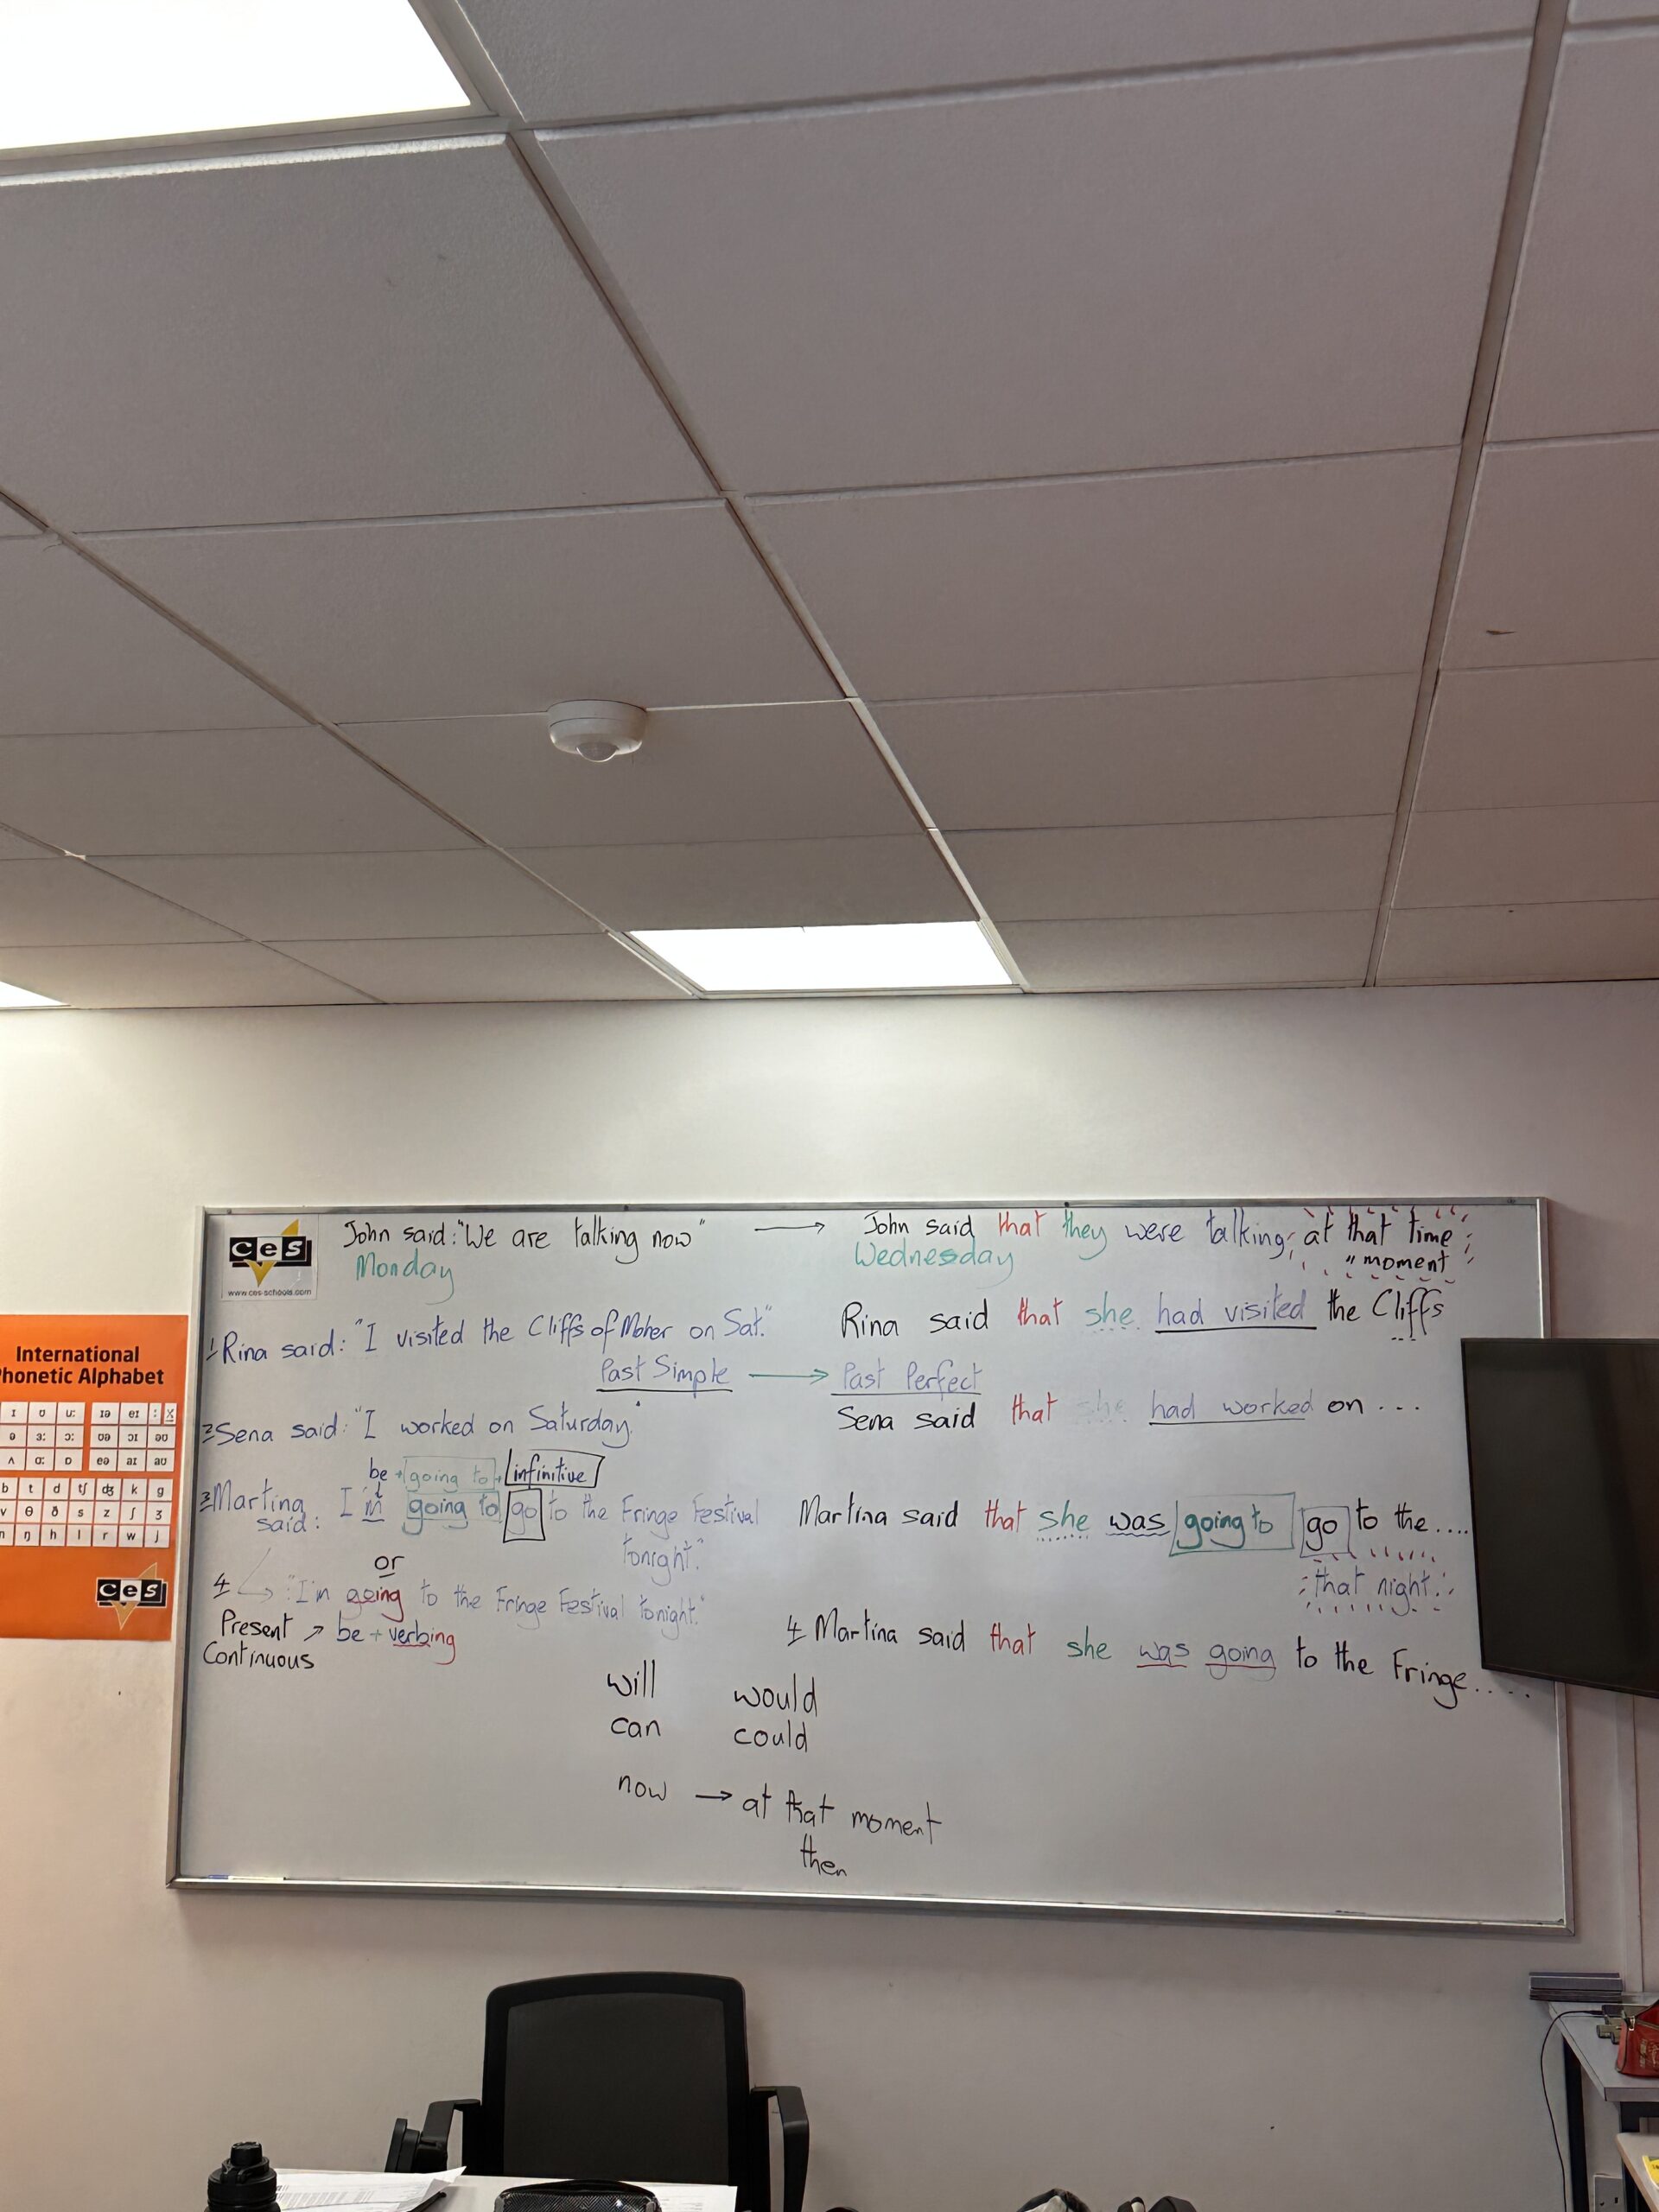 ces
www.ces-schools.com
John said: "We are talking now" → John said that they were talking at that time
Monday
Wednesday
" moment
1 Rina said: "I visited the Cliffs of Moher on Sat." Rina said that she had visited the Cliffs
Past Simple → Past Perfect
2 Sena said: "I worked on Saturday." Sena said that she had worked on ...
be + going to + infinitive
3 Martina said: I'm going to go to the Fringe Festival tonight."
Martina said that she was going to go to the ....
that night.
or
4 → "I'm going to the Fringe Festival tonight."
Present Continuous ↗ be + verbing
4 Martina said that she was going to the Fringe.....
will would
can could
now → at that moment
then
International
Phonetic Alphabet
ɪ ʊ uː ɪə eɪ
ə ɜː ɔː ʊə ɔɪ əʊ
ʌ ɑː ɒ eə aɪ aʊ
b t d tʃ dʒ k g
v θ ð s z ʃ ʒ
n ŋ h l r w j
ces